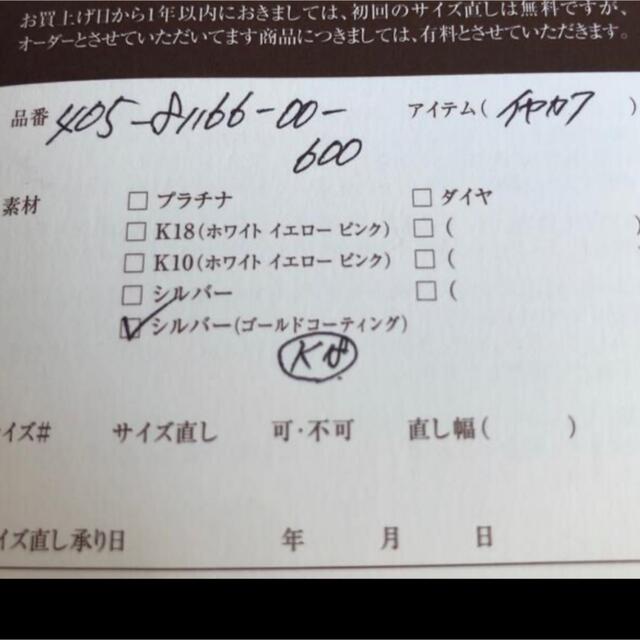 お買上げ日から1年以内におきましては、初回のサイズ直しは無料ですが、
オーダーとさせていただいてます商品につきましては、有料とさせていただきます。
品番 405-81166-00-
600
アイテム( イヤカフ )
素材
□ プラチナ □ ダイヤ
□ K18(ホワイト イエロー ピンク) □ ( )
□ K10(ホワイト イエロー ピンク) □ (
□ シルバー □ (
☑ シルバー(ゴールドコーティング)
K18
イズ# サイズ直し 可・不可 直し幅( )
イズ直し承り日 年 月 日